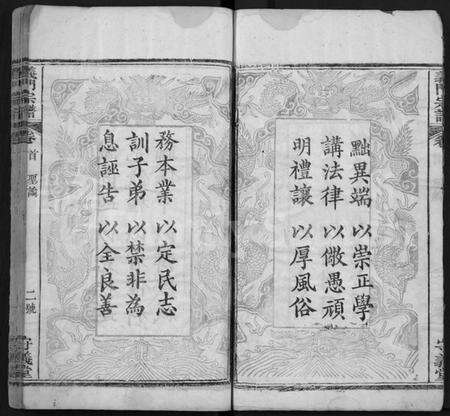 黜異端以崇正學
講法律以儆愚頑
明禮讓以厚風俗
務本業以定民志
訓子弟以禁非為
息誣告以全良善
義門宗譜
卷首
聖諭
二號
守義堂
義門宗譜